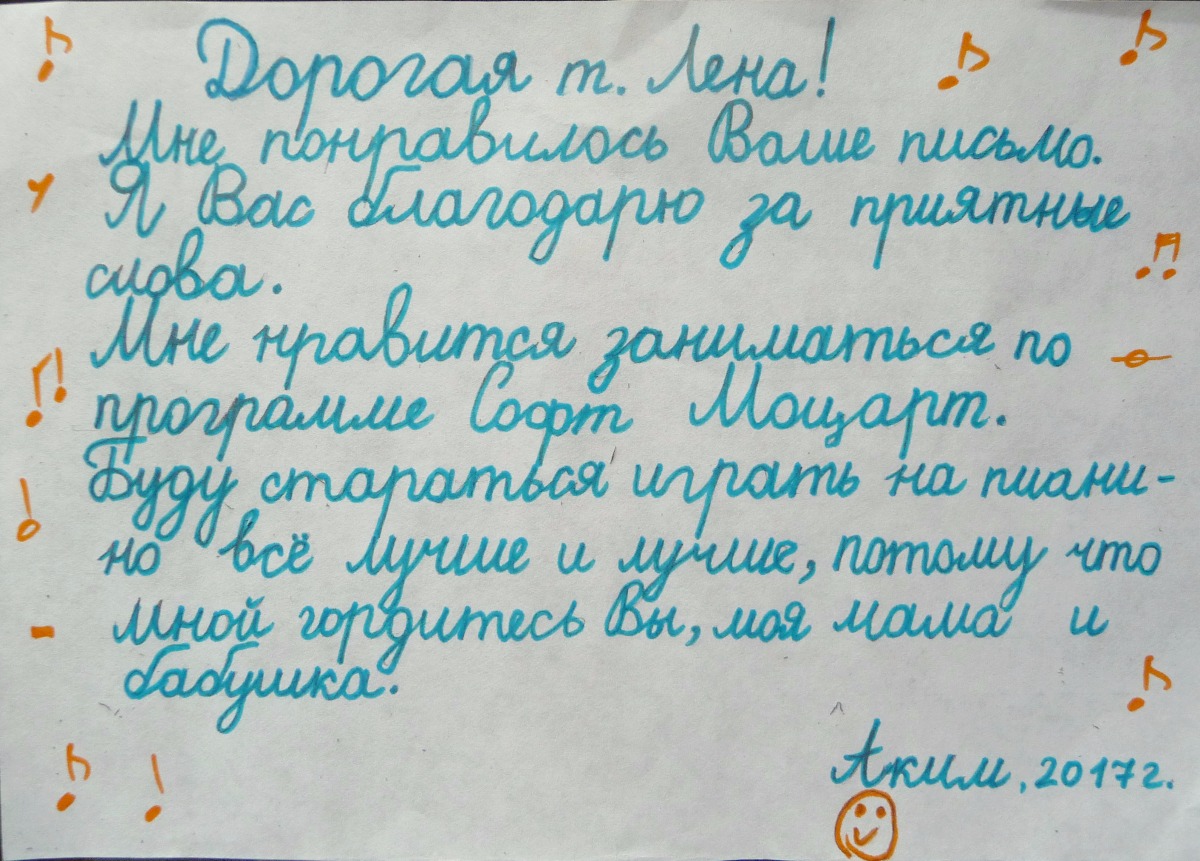 Дорогая т. Лена!
Мне понравилось Ваше письмо.
Я Вас благодарю за приятные
слова.
Мне нравится заниматься по
программе Софт Моцарт.
Буду стараться играть на пиани-
но всё лучше и лучше, потому что
мной гордитесь Вы, моя мама и
бабушка.
Аким, 2017г.